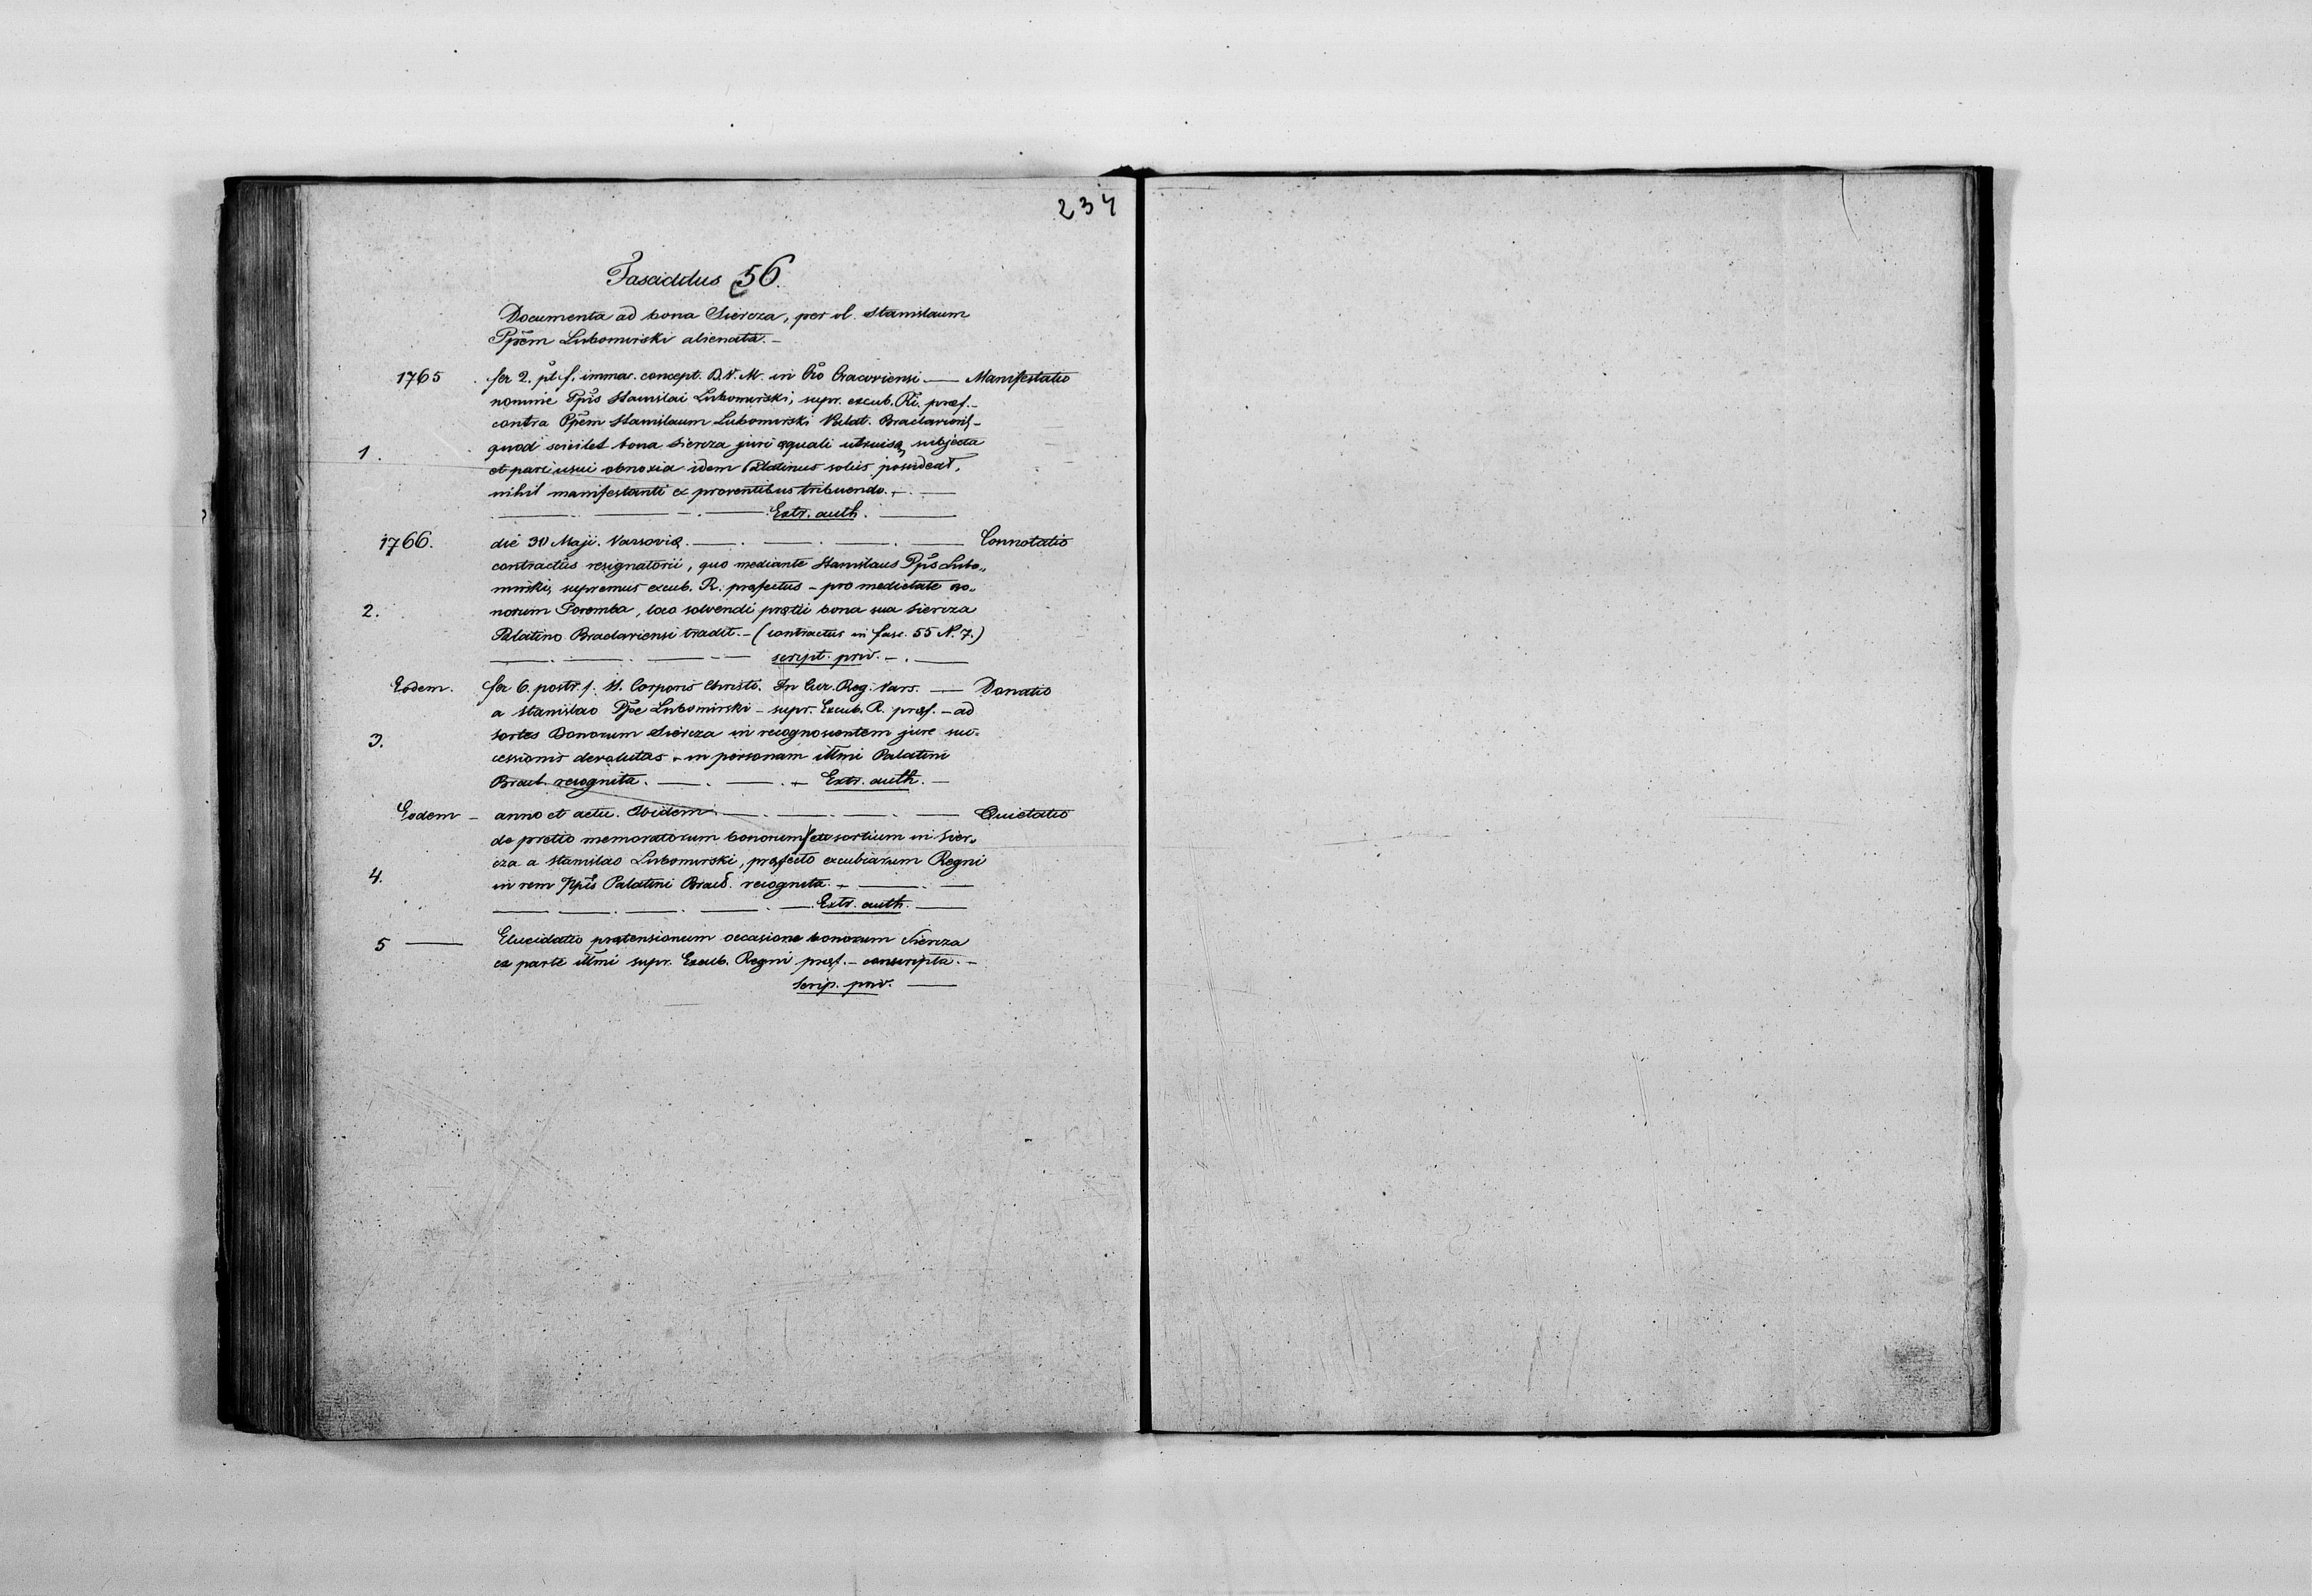 234
Fasciculus 56.
Documenta ad bona Siercza, per ol. Stanislaum
Ppem Lubomirski alienata. –
1765 fer 2. pt f. immac. concept. B.V.M. in Cro Cracoviensi — Manifestatio
nomine Ppis Stanislai Lubomirski, supr. excub. Ri. præf. –
contra Ppem Stanislaum Lubomirski Palat. Braclavien –
1. quod scilicet bona Siercza juri æquali utriusq subjecta
et pari usui obnoxia idem Palatinus solus possideat,
nihil manifestanti ex proventibus tribuendo. – . —
Extr. auth.
1766. die 30 Maji. Varsoviæ. — . — . — . — Connotatio
contractûs resignatorii, quo mediante Stanislaus Pps Lubo„
mirski, supremus excub. R. præfectus – pro medietate bo„
2. norum Poremba, loco solvendi prætii bona sua Siercza
Palatino Braclaviensi tradit. – (contractus in fasc. 55 N. 7.)
script. priv. – . —
Eodem. fer 6. postr. f. SS. Corporis Christi. In Cur. Reg. Vars. — Donatio
a Stanislao Ppe Lubomirski – supr. Excub. R. præf. – ad
3. sortes Bonorum Siercza in recognoscentem jure suc„
cessionis devolutas – in personam illmi Palatini
Bracl. recognita. — . — . – Extr. auth. —
Eodem – anno et actu. Ibidem. — . — . — . — Quietatio
de pretio memoratorum bonorum seu sortium in Sier„
cza a Stanislao Lubomirski, præfecto excubiarum Regni
4. in rem Ppis Palatini Bracl. recognita. – — . —
Extr. auth. —
5 — Elucidatio prætensionum occasione bonorum Siercza
ex parte illmi supr. Excub. Regni præf. – conscripta. –
Scrip. priv. —